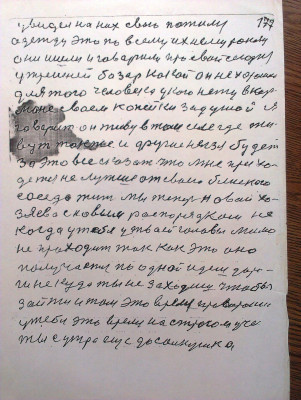 увидел на них свою
одежду это по всему их
они шли и говорили про свой сегодня
утрешней базар какой он не хороший
для того человека у кого нету в кар
мане своем копейки за душой я
говорит он живу в том селе где жи
вут также и другие
за это все сказать что мне при хо
детя не лутше от своего близкого
соседа жить мы теперь новой хо
зяева с новым распорядком не
когда у тебя у твоей головы мимо
не проходит так как это оно
получается по одной идеш доро
ги не куда ты не заходиш чтобы
зайти и там это время
у тебя это время на строгом уче
ты с утра еще до солнушка,